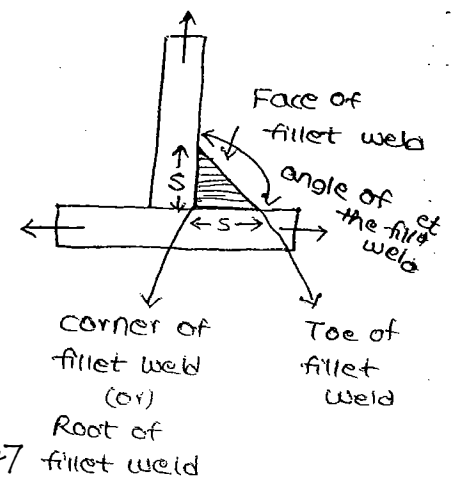 Face of
fillet weld
angle of
the fillet
weld
S
S
corner of
fillet weld
(or)
Root of
fillet weld
Toe of
fillet
weld